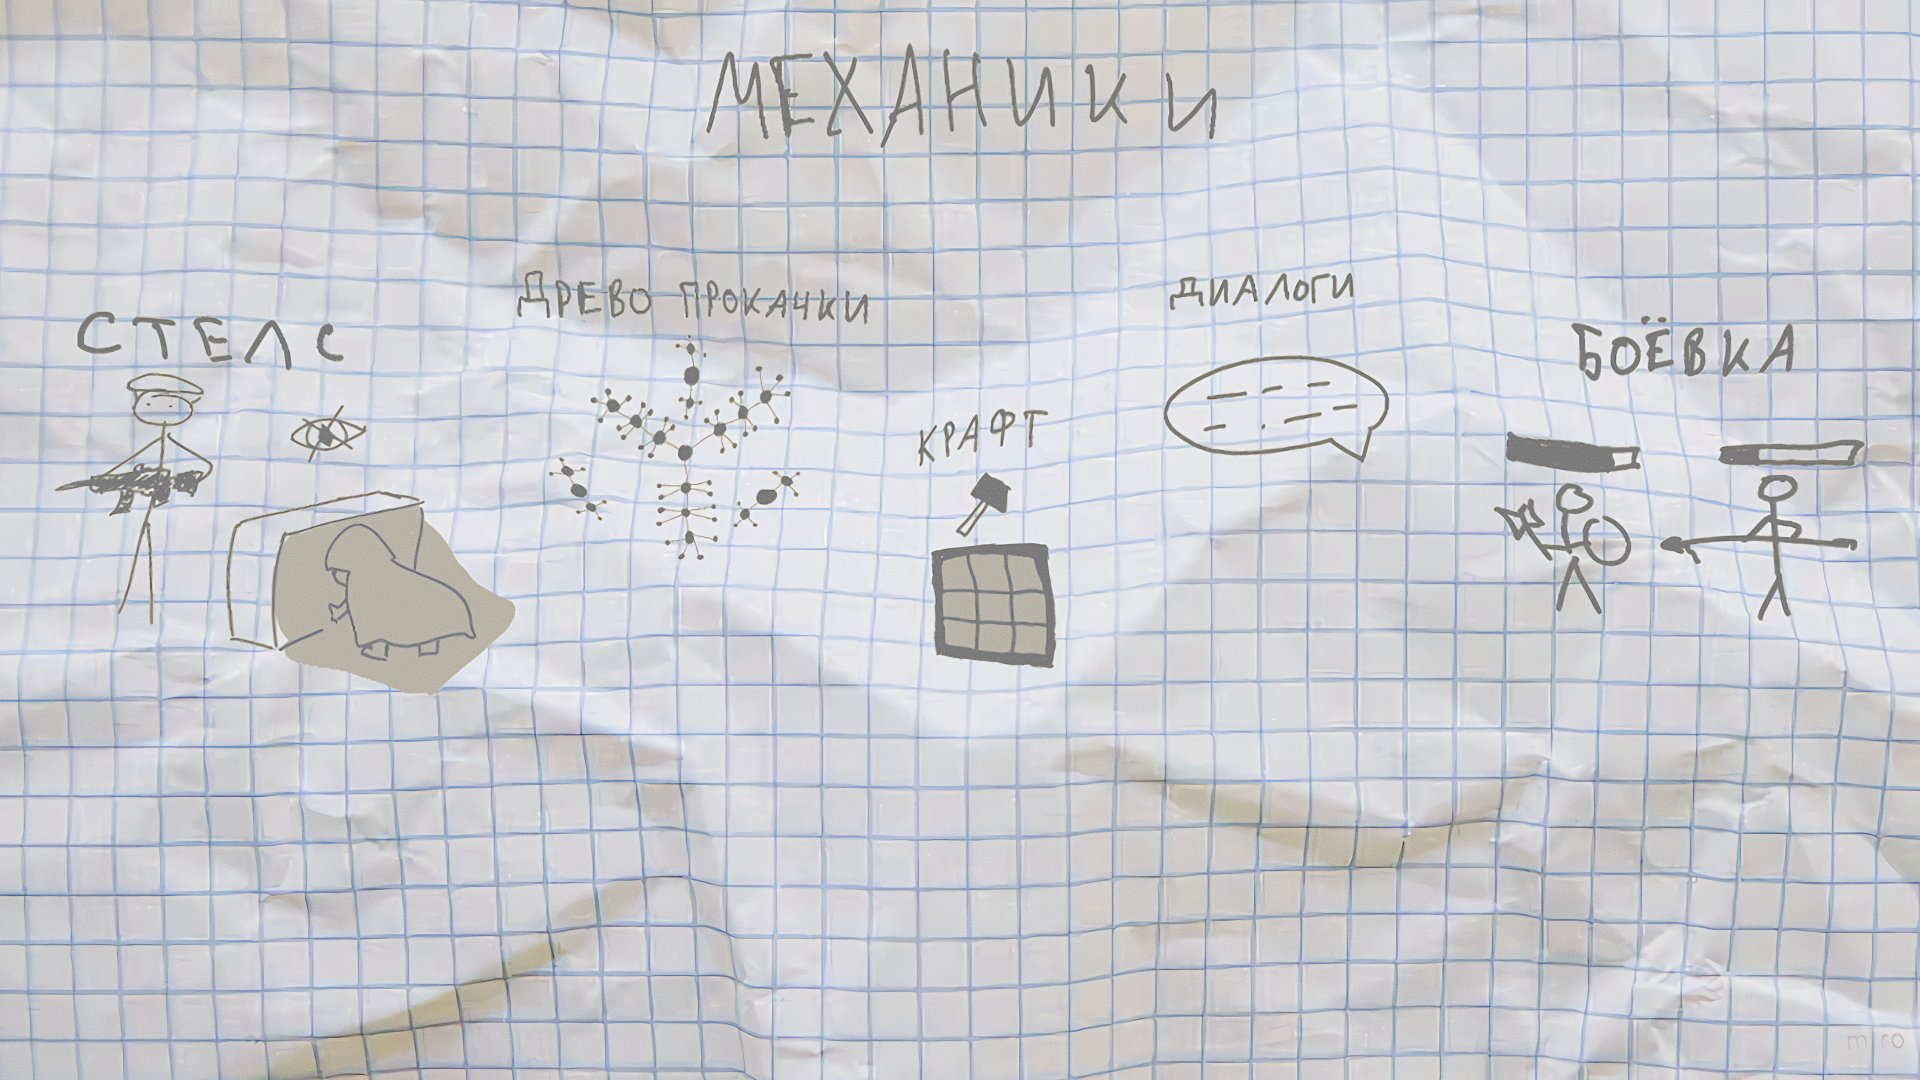 МЕХАНИКИ
СТЕЛС
ДРЕВО ПРОКАЧКИ
КРАФТ
ДИАЛОГИ
БОЁВКА
miro